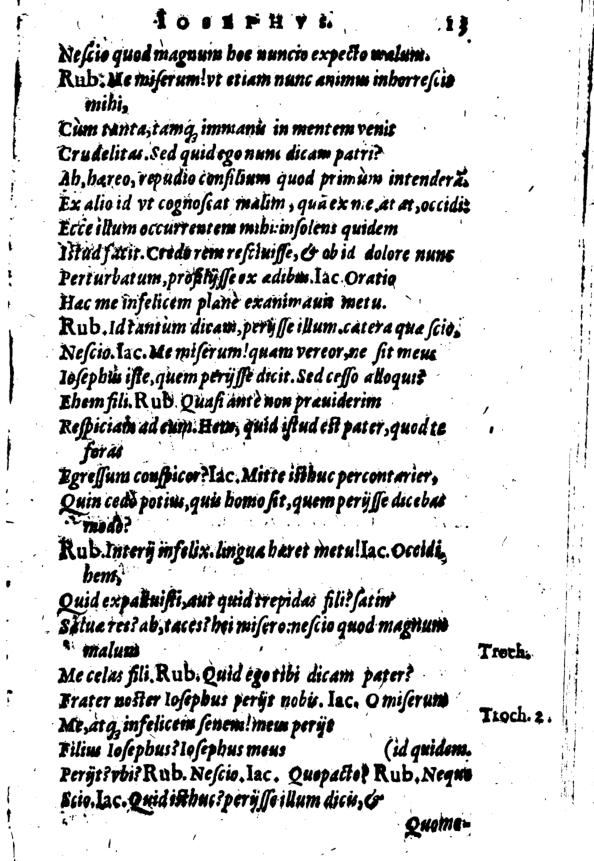 IOSEPHVS. 13
Nescio quod magnum hoc nuncio expecto malum.
Rub. Me miserum! vt etiam nunc animus inhorrescit
mihi,
Cùm tanta, tamq; immanis in mentem venit
Crudelitas. Sed quid ego nunc dicam patri?
Ah, hæreo, repudio consilium quod primùm intenderā.
Ex alio id vt cognoscat malim, quā ex me. at at, occidi:
Ecce illum occurrentem mihi: insolens quidem
Istud facit. Credo rem resciuisse, & ob id dolore nunc
Perturbatum, prosilijsse ex ædibus. Iac. Oratio
Hæc me infelicem planè exanimauit metu.
Rub. Id tantùm dicam, perijsse illum. cætera quæ scio,
Nescio. Iac. Me miserum! quam vereor, ne sit meus
Iosephus iste, quem perijsse dicit. Sed cesso alloqui?
Ehem fili. Rub. Quasi antè non præuiderim
Respiciam ad eum. Hem, quid istud est pater, quod te
foras
Egressum conspicor? Iac. Mitte isthuc percontarier,
Quin cedò potius, quis homo sit, quem perijsse dicebas
modò?
Rub. Interij infelix. lingua hæret metu! Iac. Occidi,
hem,
Quid expalluisti, aut quid trepidas fili? satin'
Salua res? ah, taces? hei misero: nescio quod magnum
malum Troch.
Me celas fili. Rub. Quid ego tibi dicam pater?
Frater noster Iosephus perijt nobis. Iac. O miserum
Me, atq; infelicem senem! meus perijt Troch. 2.
Filius Iosephus? Iosephus meus (id quidem.
Perijt? vbi? Rub. Nescio. Iac. Quo pacto? Rub. Neque
Scio. Iac. Quid isthuc? perijsse illum dicis, &
Quomo-